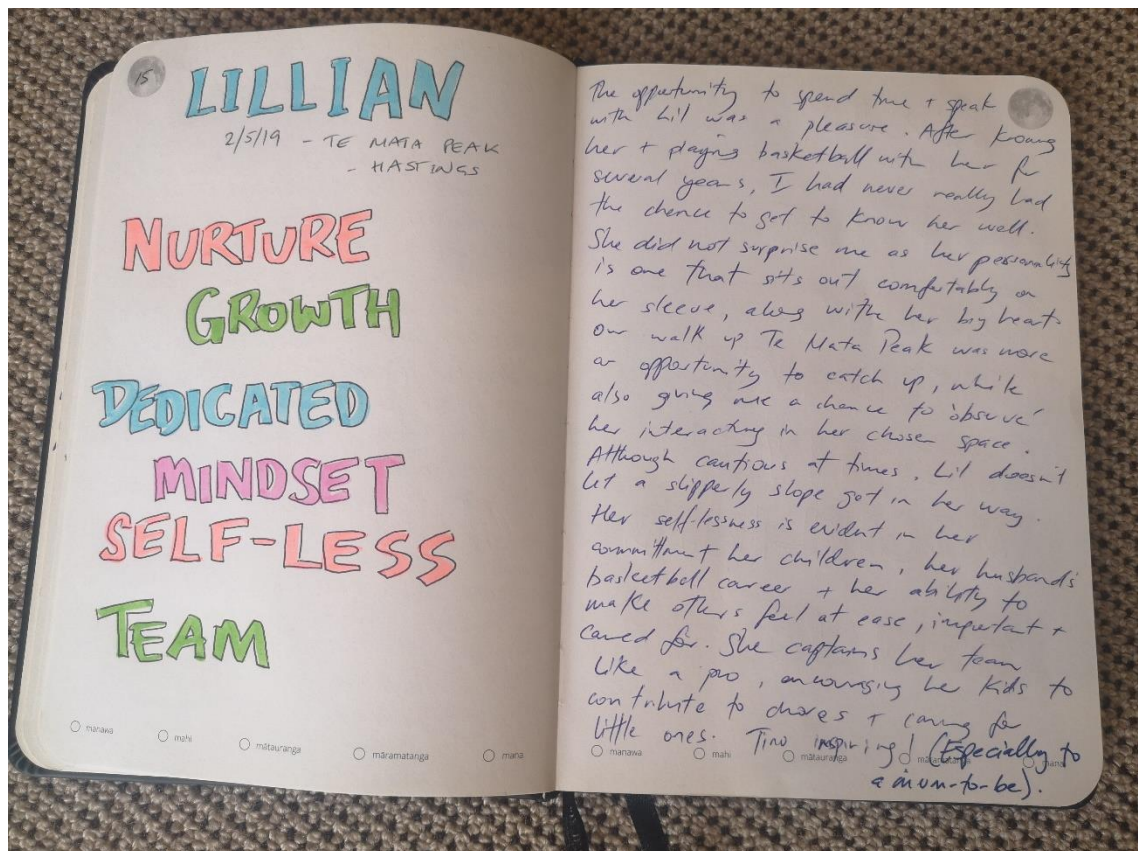 15
LILLIAN
2/5/19 - TE MATA PEAK
- HASTINGS
NURTURE
GROWTH
DEDICATED
MINDSET
SELF-LESS
TEAM
manawa
mahi
mātauranga
māramatanga
mana
The oppurtunity to spend time + speak
with Lil was a pleasure. After knowing
her + playing basketball with her for
several years, I had never really had
the chance to get to know her well.
She did not surprise me as her personality
is one that sits out comfortably on
her sleeve, along with her big heart.
Our walk up Te Mata Peak was more
an opportunity to catch up, while
also giving me a chance to 'observe'
her interacting in her chosen space.
Although cautious at times, Lil doesn't
let a slipperly slope get in her way.
Her self-lessness is evident in her
committment her children, her husband's
basketball career + her ability to
make others feel at ease, important +
cared for. She captains her team
like a pro, encouraging her kids to
contribute to chores + caring for
little ones. Tino inspiring! (Especially to
a mum-to-be).
manawa
mahi
mātauranga
māramatanga
mana